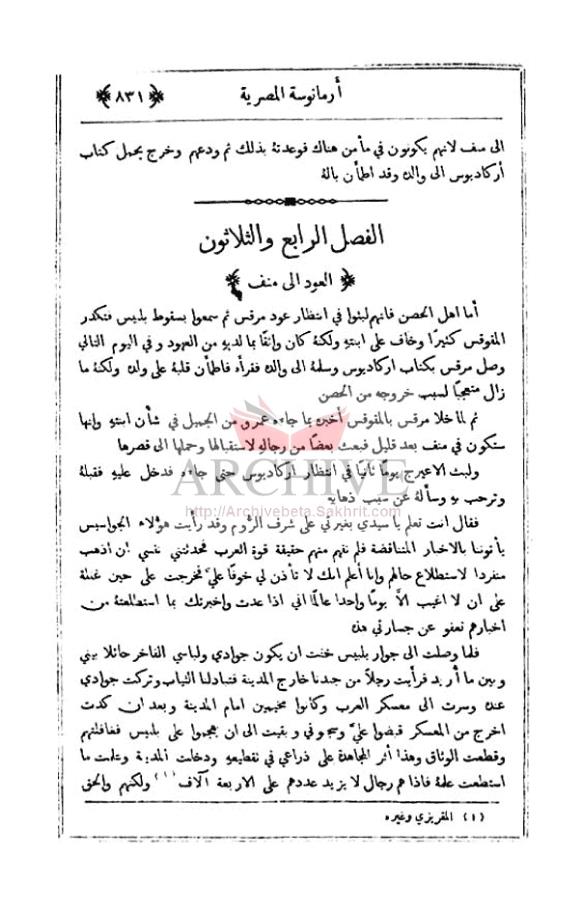 أرمانوسة المصرية ﴿ ٨٣١ ﴾
الى منف لانهم يكونون في مأمن هناك فوعدته بذلك ثم ودعهم وخرج يحمل كتاب
أركاديوس الى والده وقد اطمأن باله
الفصل الرابع والثلاثون
﴿ العود الى منف ﴾
أما اهل الحصن فانهم لبثوا في انتظار عود مرقس ثم سمعوا بسقوط بلبيس فتكدر
المقوقس كثيرًا وخاف على ابنته ولكنه كان واثقًا بما لديه من العهود وفي اليوم التالي
وصل مرقس بكتاب اركاديوس وسلمه الى والده فقرأه فاطمأن قلبه على ولده ولكنه ما
زال متعجبًا لسبب خروجه من الحصن
ثم لما خلا مرقس بالمقوقس أخبره بما جاءه عمرو من الجميل في شأن ابنته وانها
ستكون في منف بعد قليل فبعث بعضًا من رجاله لاستقبالها وحملها الى قصرها
ولبث الاعيرج يومًا ثانيًا في انتظار اركاديوس حتى جاءه فدخل عليه فقبله
وترحب به وسأله عن سبب ذهابه
ARCHIVE
http://Archivebeta.Sakhrit.com
فقال انت تعلم يا سيدي بغيرتي على شرف الروم وقد رأيت هؤلاء الجواسيس
يأتوننا بالاخبار المتناقضة فلم نفهم منهم حقيقة قوة العرب فحدثتني نفسي ان أذهب
منفردا لاستطلاع حالهم وانا أعلم انك لا تأذن لي خوفًا عليّ فخرجت على حين غفلة
على ان لا اغيب الاّ يومًا واحدا عالمًا اني اذا عدت واخبرتك بما استطلعته من
اخبارهم تعفو عن جسارتي هذه
فلما وصلت الى جوار بلبيس خفت ان يكون جوادي ولباسي الفاخر حائلا بيني
وبين ما أريد فرأيت رجلاً من جندنا خارج المدينة فتبادلنا الثياب وتركت جوادي
عنده وسرت الى معسكر العرب وكانوا مخيمين امام المدينة وبعد ان كدت
اخرج من المعسكر قبضوا عليّ وسجنوني وبقيت الى ان هجموا على بلبيس فغافلتهم
وقطعت الوثاق وهذا أثر المجاهدة على ذراعي في تقطيعه ودخلت المدينة وعلمت ما
استطعت علمه فاذا هم رجال لا يزيد عددهم على الاربعة آلاف (١) ولكنهم والحق
(١) المقريزي وغيره